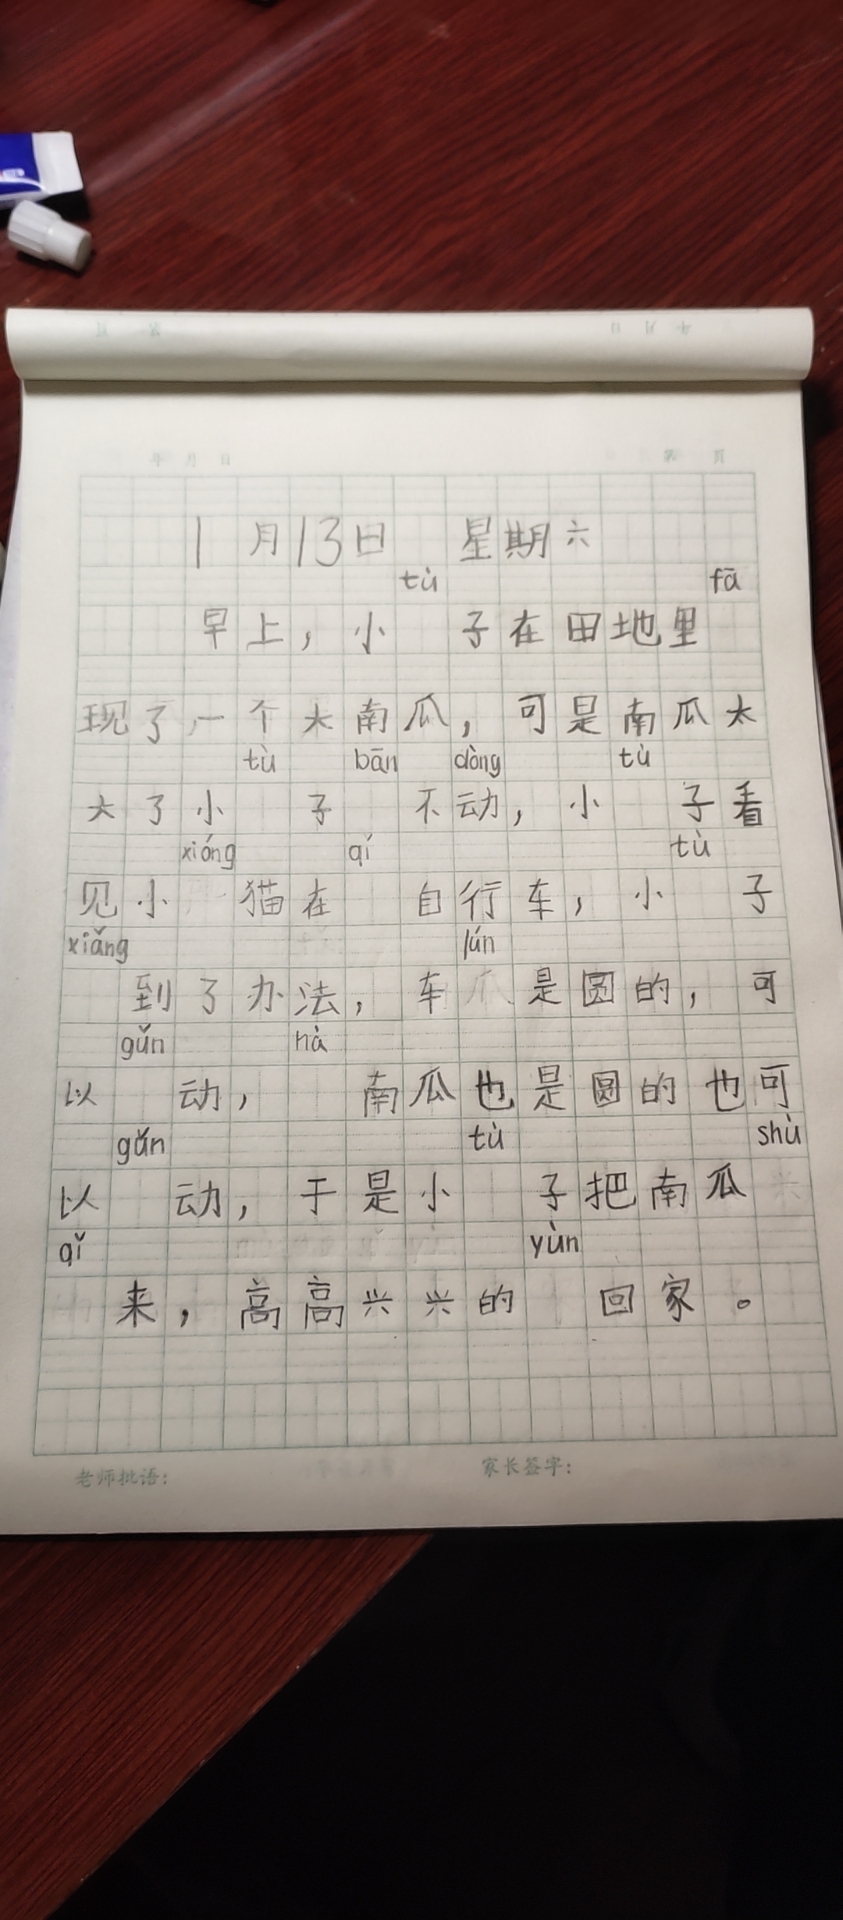 年 月 日 第 页
1月13日 星期六
tù fā
早上，小 子在田地里
现了一个大南瓜，可是南瓜太
tù bān dòng tù
大了小 子 不动，小 子看
xióng qí tù
见小 猫在 自行车，小 子
xiǎng lún
到了办法，车 是圆的，可
gǔn nà
以 动， 南瓜也是圆的也可
gǔn tù shù
以 动，于是小 子把南瓜
qǐ yùn
来，高高兴兴的 回家。
老师批语： 家长签字：